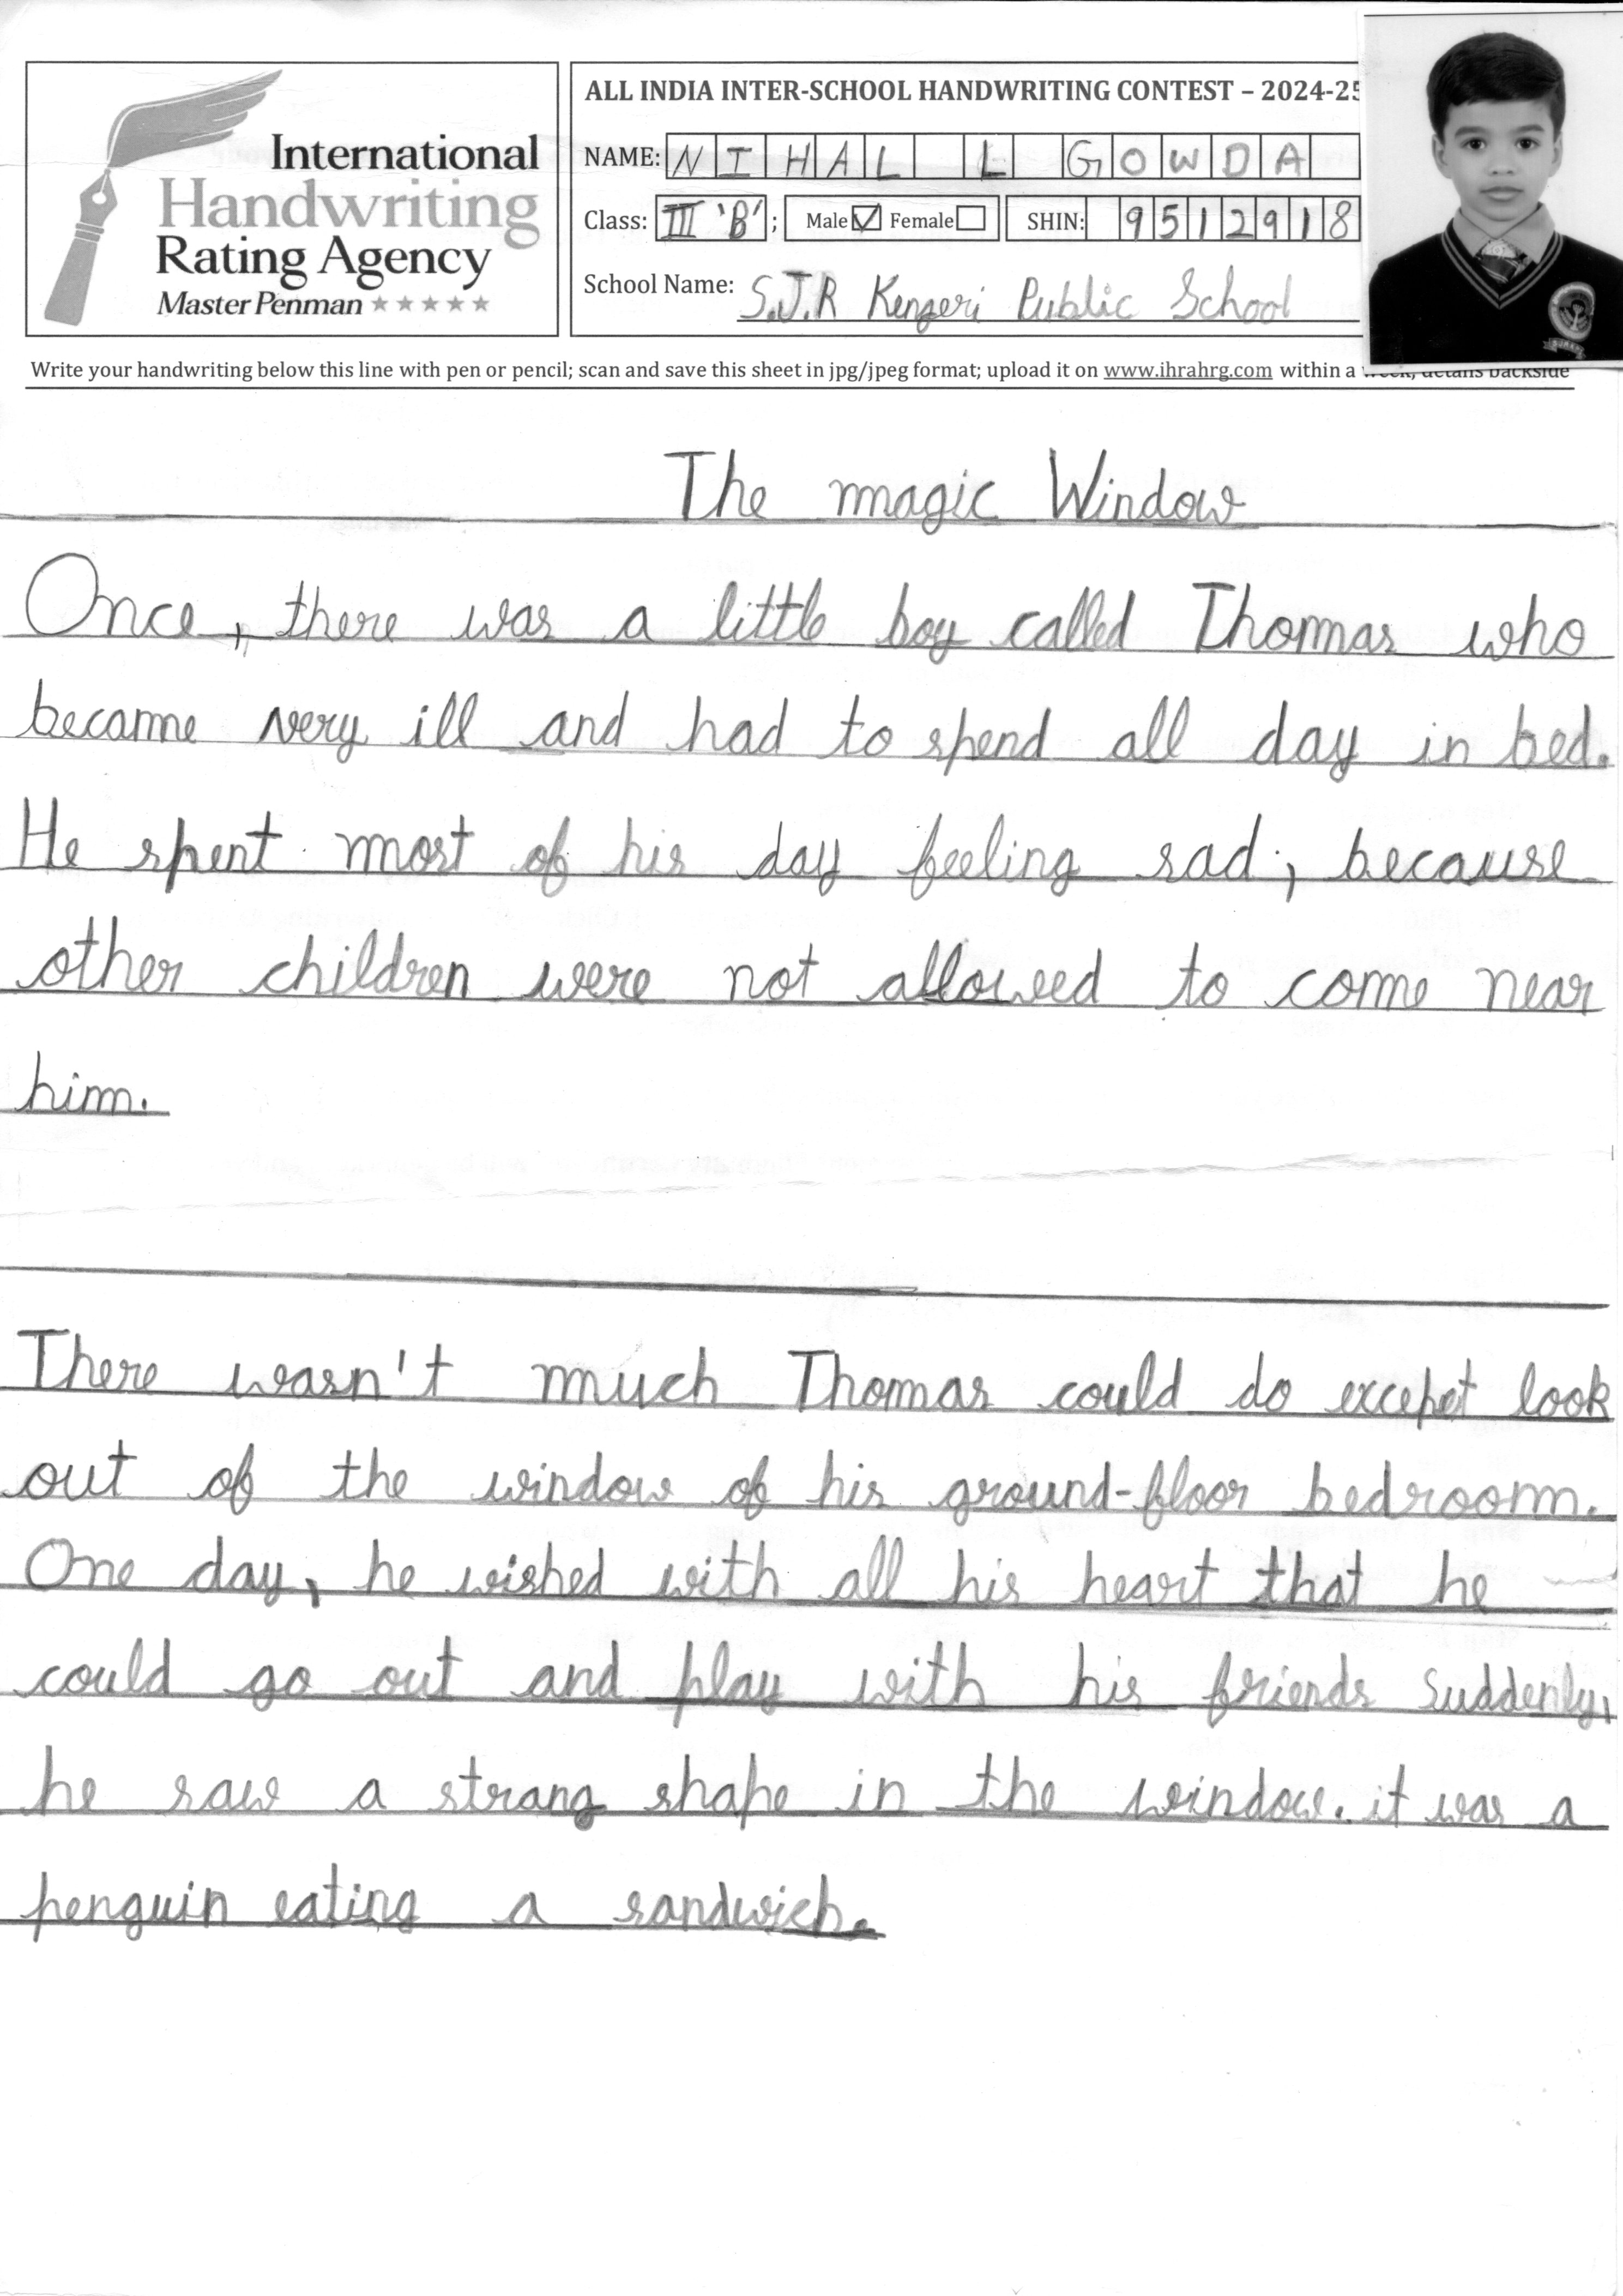 International
Handwriting
Rating Agency
Master Penman
ALL INDIA INTER-SCHOOL HANDWRITING CONTEST – 2024-25
NAME: NIHAL L GOWDA
Class: III 'B'; Male Female SHIN: 9512918
School Name: S.J.R Kengeri Public School
Write your handwriting below this line with pen or pencil; scan and save this sheet in jpg/jpeg format; upload it on www.ihrahrg.com within a week, details backside
The magic Window
Once, there was a little boy called Thomas who
became very ill and had to spend all day in bed.
He spent most of his day feeling sad, because
other children were not allowed to come near
him.
There wasn't much Thomas could do excepet look
out of the window of his ground-floor bedroom.
One day, he wished with all his heart that he
could go out and play with his friends Suddenly,
he saw a strang shape in the window. it was a
penguin eating a sandwich.